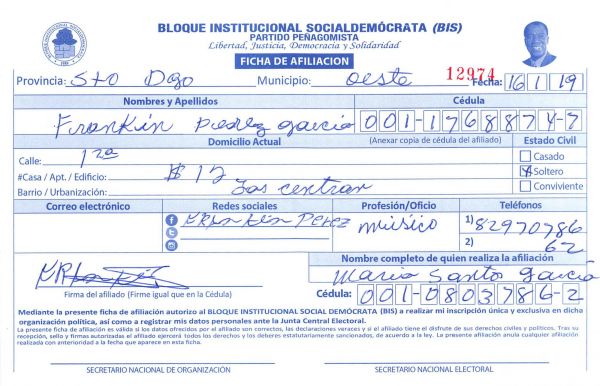 BLOQUE INSTITUCIONAL SOCIALDEMÓCRATA (BIS)
PARTIDO PEÑAGOMISTA
Libertad, Justicia, Democracia y Solidaridad
FICHA DE AFILIACION
12974
Provincia: Sto Dgo Municipio: oeste Fecha: 16 1 19
Nombres y Apellidos Cédula
Frankin Perez garcia 001-1768874-7
Domicilio Actual (Anexar copia de cédula del afiliado) Estado Civil
Calle: 1ra Casado
#Casa / Apt. / Edificio: # 12 Soltero
Barrio / Urbanización: Conviviente
Correo electrónico Redes sociales Profesión/Oficio Teléfonos
Perez músico 1) 82970786
2) 62
Nombre completo de quien realiza la afiliación
Mario Santos garcia
Firma del afiliado (Firme igual que en la Cédula) Cédula: 001-0803786-2
Mediante la presente ficha de afiliación autorizo al BLOQUE INSTITUCIONAL SOCIAL DEMÓCRATA (BIS) a realizar mi inscripción única y exclusiva en dicha
organización política, así como a registrar mis datos personales ante la Junta Central Electoral.
La presente ficha de afiliación es válida si los datos ofrecidos por el afiliado son correctos, las declaraciones veraces y si el afiliado tiene el disfrute de sus derechos civiles y políticos. Tras su
recepción, sello y firmas autorizadas el afiliado ejercerá todos los derechos y los deberes estatutariamente sancionados, de acuerdo a la ley. La presente afiliación anula cualquier afiliación
realizada con anterioridad a la fecha que aparece en esta ficha.
SECRETARIO NACIONAL DE ORGANIZACIÓN SECRETARIO NACIONAL ELECTORAL